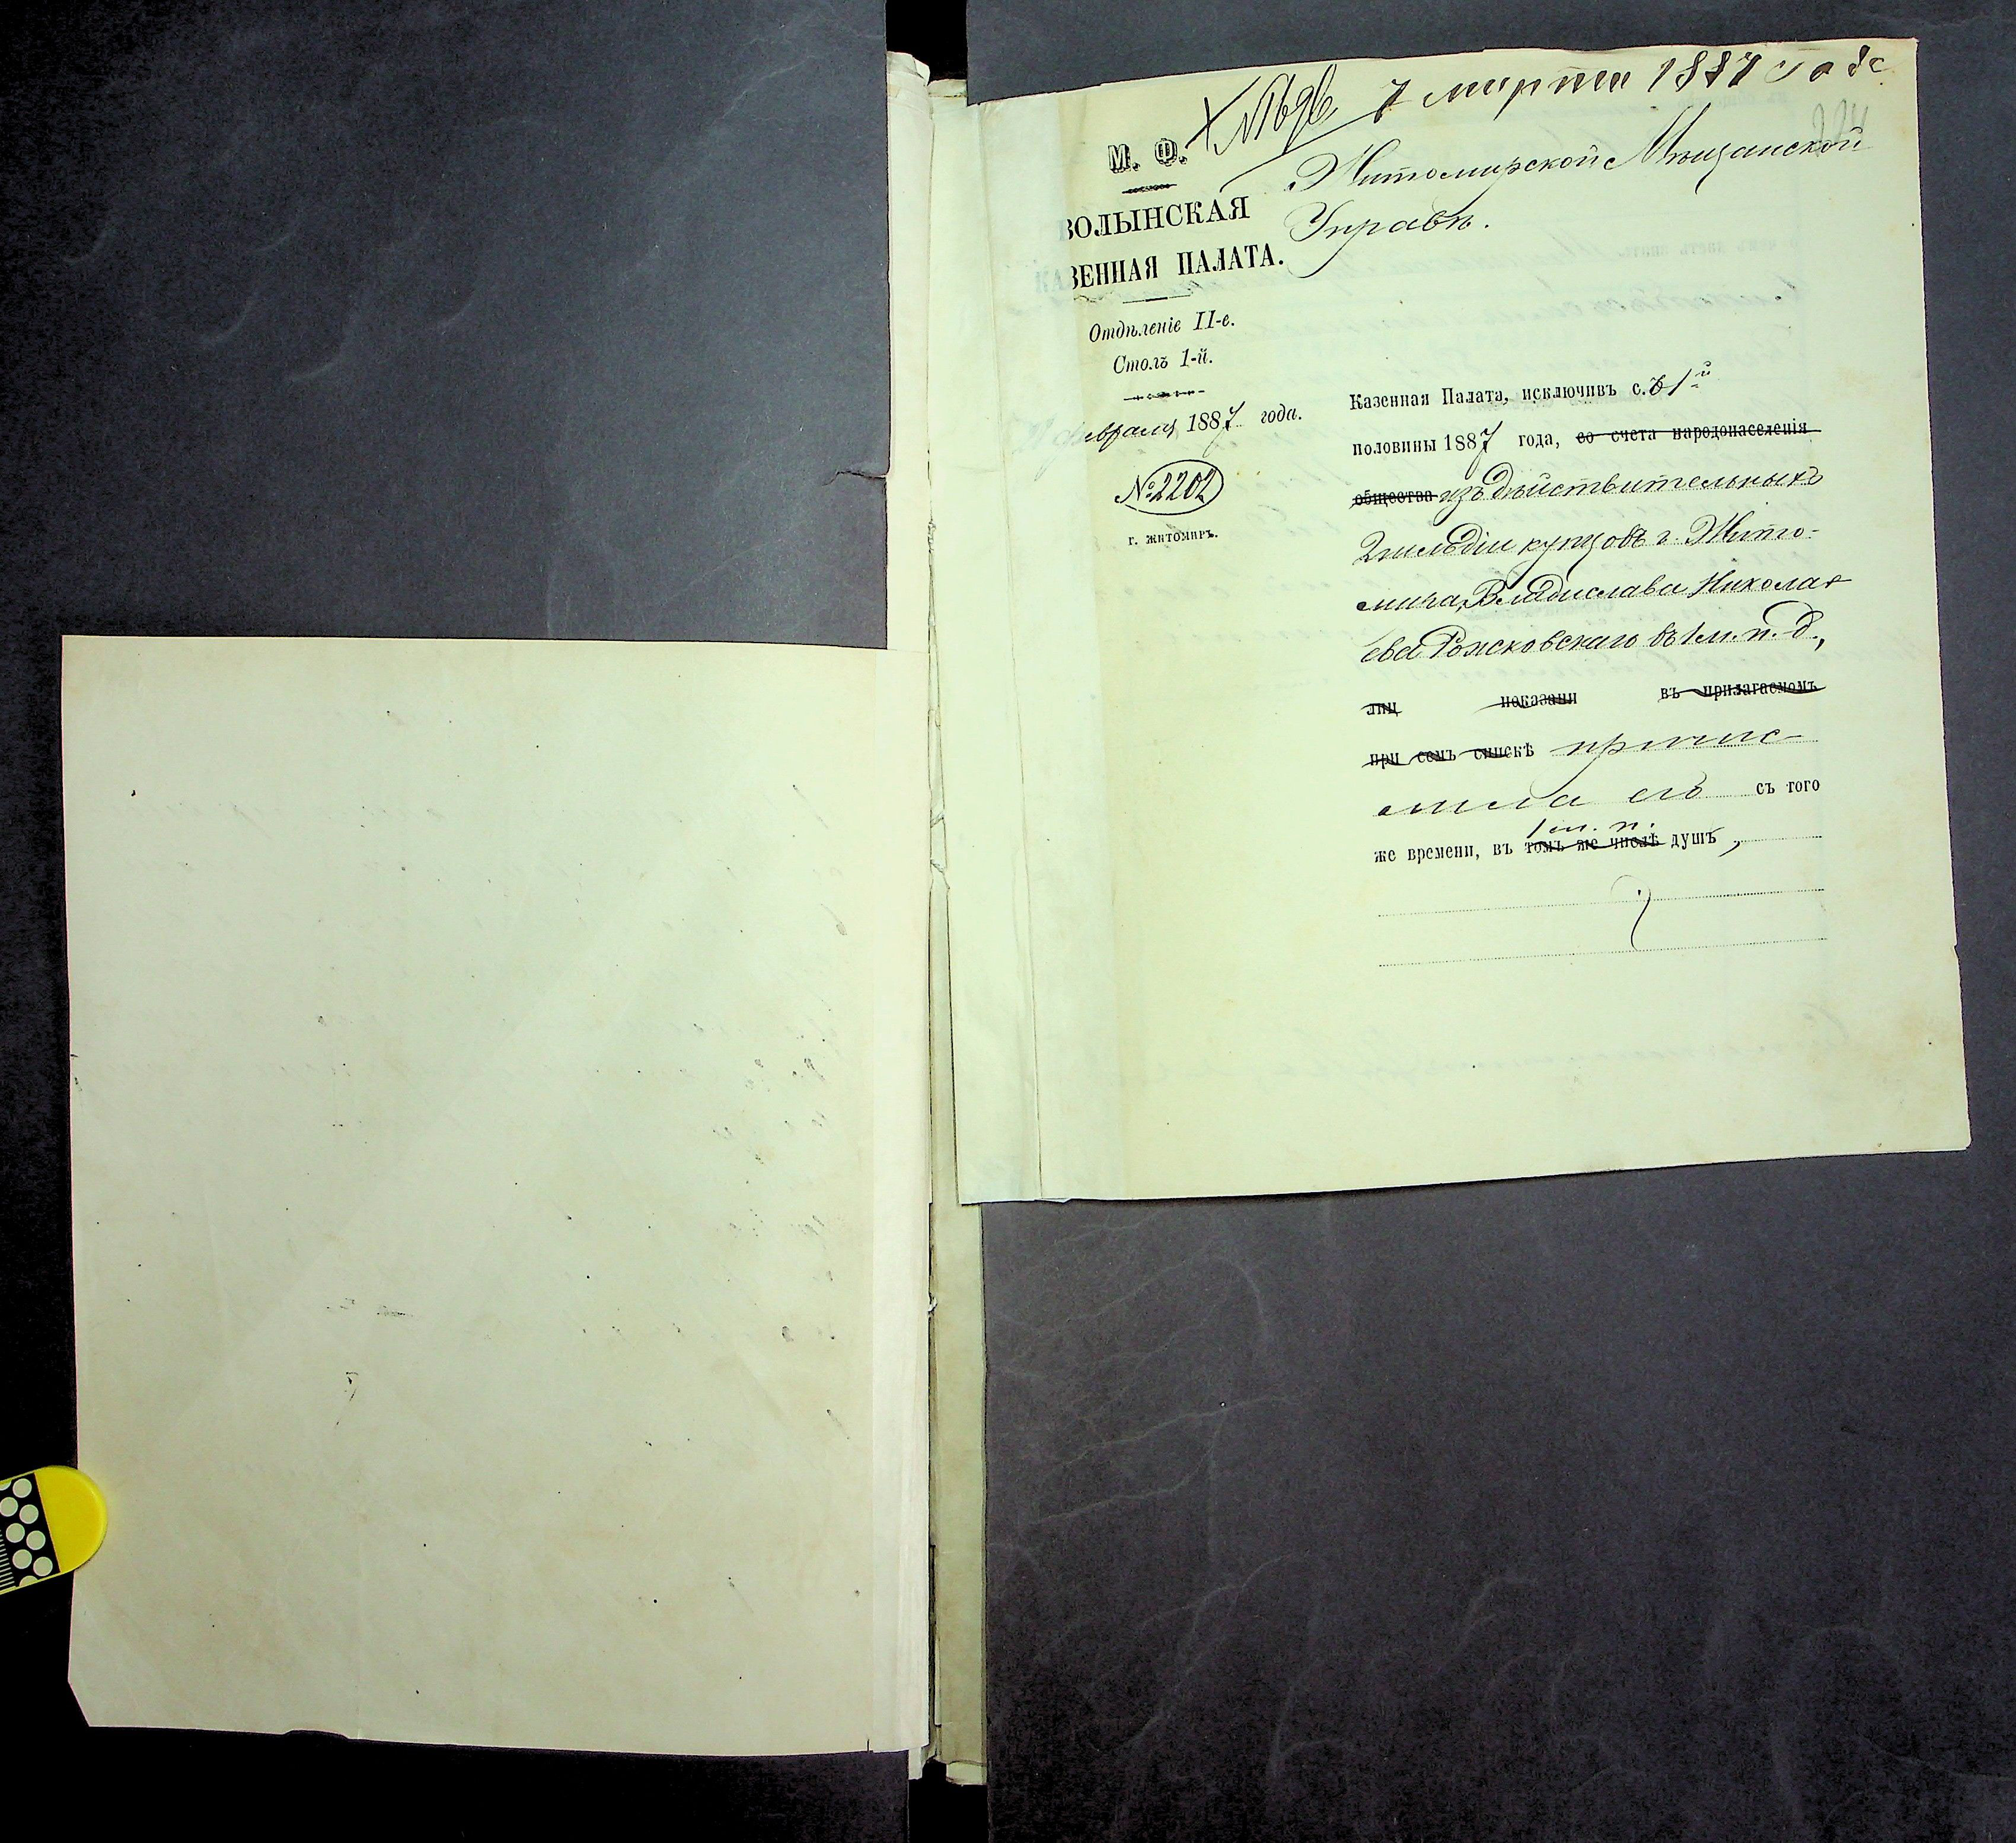 7 марта 1887 года
М. Ф.
Житомирской Мѣщанской
Управѣ.
ВОЛЫНСКАЯ
КАЗЕННАЯ ПАЛАТА.
Отдѣленіе II-е.
Столъ 1-й.
февраля 1887 года.
№ 2202
г. житомиръ.
Казенная Палата, исключивъ съ 1й
половины 1887 года, со счета народонаселенія
общества изъ дѣйствительныхъ
2 гильдіи купцовъ г. Жито-
мира, Владислава Николае-
ва Рожсковскаго въ 1 м. п. д.,
лиц показани въ прилагаемомъ
при семъ спискѣ причис-
лила его съ того
1 м. п.
же времени, въ томъ же числѣ душъ,